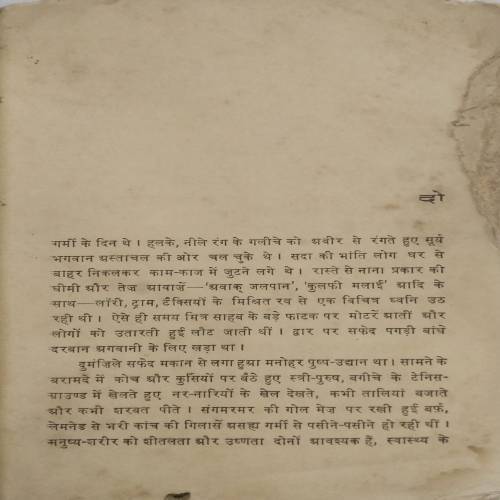 दो
गर्मी के दिन थे । हलके, नीले रंग के गलीचे को अबीर से रंगते हुए सूर्य
भगवान अस्ताचल की ओर चल चुके थे । सदा की भांति लोग घर से
बाहर निकलकर काम-काज में जुटने लगे थे । रास्ते से नाना प्रकार की
धीमी और तेज़ आवाज़ें—‘अवाक् जलपान’, ‘कुलफी मलाई’ आदि के
साथ—लॉरी, ट्राम, टैक्सियों के मिश्रित रव से एक विचित्र ध्वनि उठ
रही थी । ऐसे ही समय मित्र साहब के बड़े फाटक पर मोटरें आतीं और
लोगों को उतारती हुई लौट जाती थीं । द्वार पर सफेद पगड़ी बांधे
दरबान अगवानी के लिए खड़ा था ।
दुमंजिले सफेद मकान से लगा हुआ मनोहर पुष्प-उद्यान था । सामने के
बरामदे में कोच और कुर्सियों पर बैठे हुए स्त्री-पुरुष, बगीचे के टेनिस-
ग्राउण्ड में खेलते हुए नर-नारियों के खेल देखते, कभी तालियां बजाते
और कभी शरबत पीते । संगमरमर की गोल मेज़ पर रखी हुई बर्फ़,
लेमनेड से भरी कांच की गिलासें असह्य गर्मी से पसीने-पसीने हो रही थीं ।
मनुष्य-शरीर को शीतलता और उष्णता दोनों आवश्यक हैं, स्वास्थ्य के